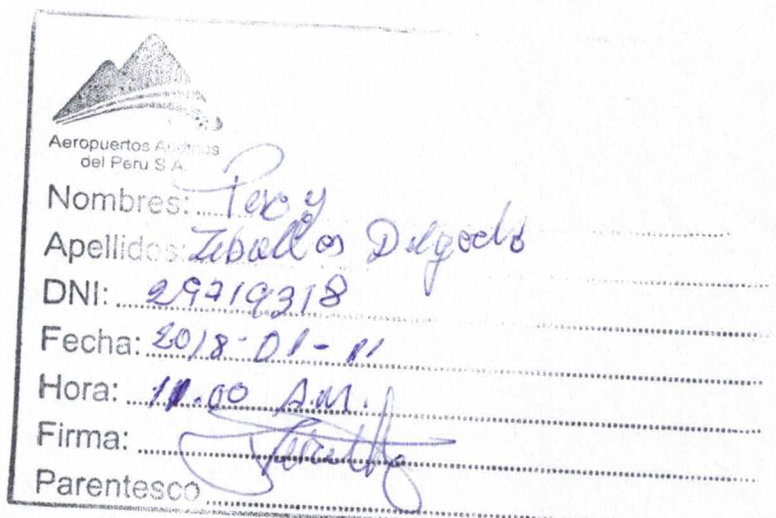 Aeropuertos Andinos
del Peru S.A.
Nombres: Percy
Apellidos: Zeballos Delgado
DNI: 29719318
Fecha: 2018-01-11
Hora: 11.00 A.M.
Firma:
Parentesco